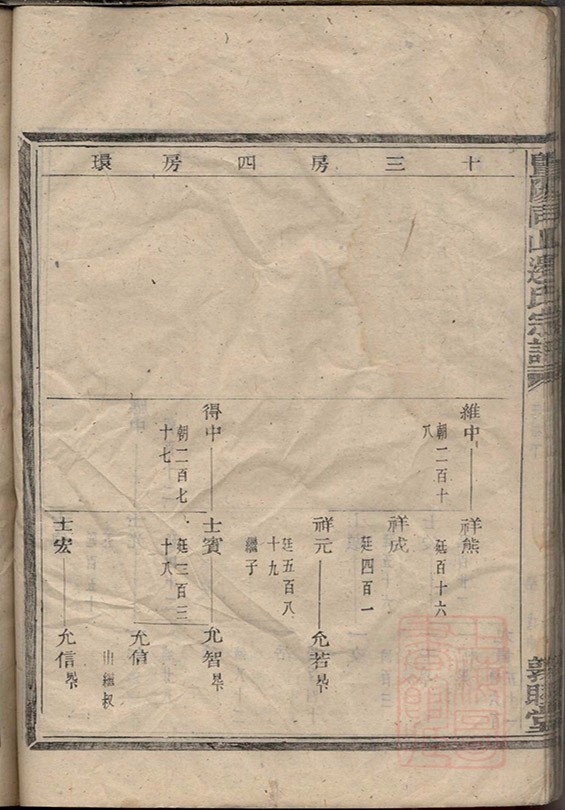 暨陽南山邊氏宗譜
敦睦堂
十三房四房環
維中
朝二百十
八
祥熊
廷百十六
祥成
廷四百一
祥元
廷五百八
十九
繼子
允若
得中
朝二百七
十七
士賓
廷三百三
十八
允智
允信
出繼叔
士宏
允信